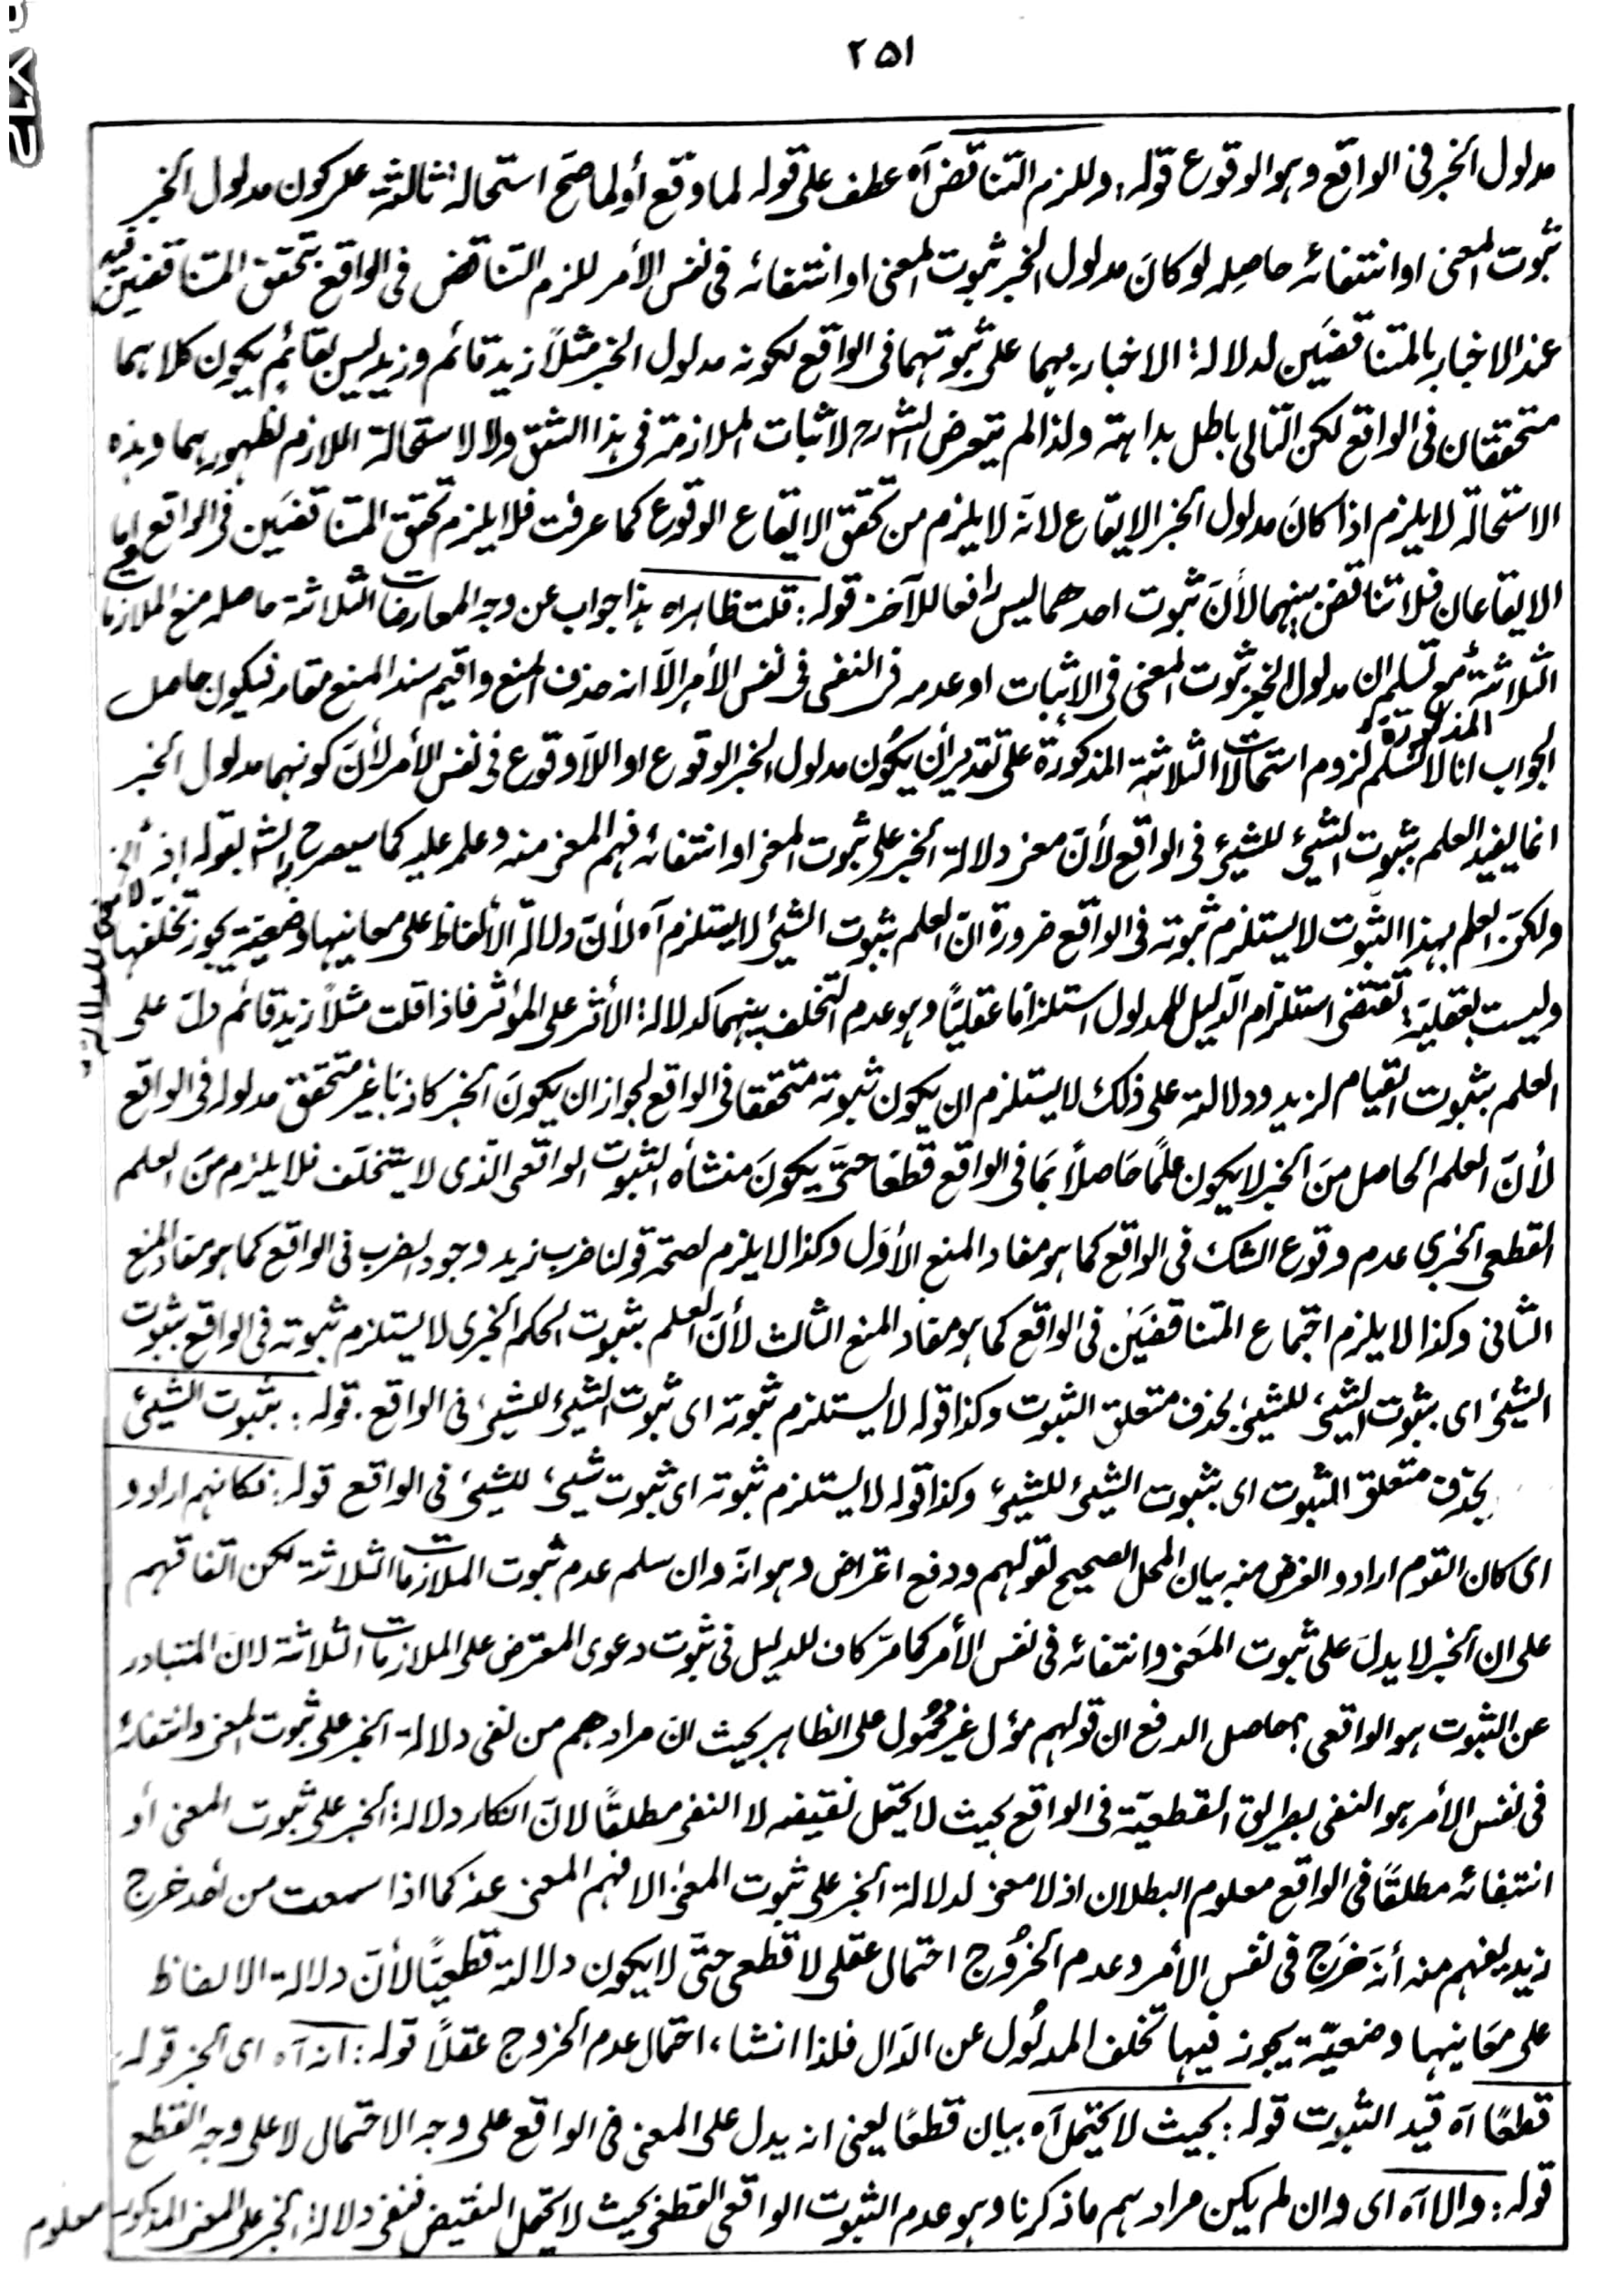 ٢٥١
مدلول الخبر فى الواقع وهو الوقوع قوله: وللزم التناقض آه عطف على قوله لما وقع أو لما صح استحالة ثالثة على كون مدلول الخبر
ثبوت المعنى او انتفائه حاصله لو كانَ مدلول الخبر ثبوت المعنى او انتفائه فى نفس الأمر للزم التناقض فى الواقع بتحقق المتناقضين فيه
عند الاخبار بالمتناقضَين لدلالة الاخبار بهما على ثبوتهما فى الواقع لكونه مدلول الخبر مثلاً زيد قائم وزيد ليس بقائمٍ يكون كلاهما
متحققان فى الواقع لكن التالى باطل بداهة ولذا لم يتعرض الشارح لاثبات الملازمة فى هذا الشق ولا لاستحالة اللازم لظهورهما وهذه
الاستحالة لا يلزم اذا كانَ مدلول الخبر الايقاع لانه لا يلزم من تحقق الايقاع الوقوع كما عرفت فلا يلزم تحقق المتناقضَين فى الواقع واما
الايقاعان فلا تناقض بينهما لأنَ ثبوت احدهما ليس رافعا للآخر قوله: قلت ظاهراه هذا جواب عن وجه المعارضات الثلاثة حاصله منع الملازمات
الثلاثة مع تسليم ان مدلول الخبر ثبوت المعنى فى الاثبات او عدمه فى النفى فى نفس الأمر الاَ انه حذف المنع واقيم سند المنع مقامه فيكون حاصل
الجواب انا لا نسلم لزوم استحالات الثلاثة المذكورة على تقدير أن يكُون مدلول الخبر الوقوع او اللاَوقوع فى نفس الأمر لأنَ كونهما مدلول الخبر
المذكورة
انما يفيد العلم بثبوت الشئ للشئ فى الواقع لأنَ معنى دلالة الخبر على ثبوت المعنى او انتفائه فهم المعنى منه وعلمه عليه كما سيصرح به الش بقوله اذ
ولكنَ العلم بهذا الثبوت لا يستلزم ثبوته فى الواقع ضرورة انَ العلم بثبوت الشئ لا يستلزم آه لأنَ دلالة الألفاظ على معانيها وضعية يجوز تخلفها
وليست بعقلية تقتضى استلزام الدَليل للمدلول استلزامًا عقليًا وهو عدم التخلف بينهما كدلالة الأثر على المؤثر فاذا قلت مثلاً زيد قائم دلَ على
العلم بثبوت القيام لزيد ودلالته على ذلك لا يستلزم ان يكون ثبوته متحققا فى الواقع لجواز ان يكونَ الخبر كاذبًا غير متحقق مدلوله فى الواقع
لأنَ العلم الحاصل منَ الخبر لا يكون علمًا حَاصلاً بمَا فى الواقع قطعًا حتىَ يكونَ منشأه الثبوت الواقعى الذى لا يتخلَف فلا يلزم منَ العلم
القطعى الخبرى عدم وقوع الشك فى الواقع كما هو مفاد المنع الأوَل وكذا لا يلزم لصحة قولنا ضرب زيد وجود الضرب فى الواقع كما هو مفاد المنع
الثانى وكذا لا يلزم اجتماع المتناقضَيَن فى الواقع كما هو مفاد المنع الثالث لأنَ العلم بثبوت الحكم الخبرى لا يستلزم ثبوته فى الواقع بثبوت
الشئ اى بثبوت الشئ للشئ بحذف متعلق الثبوت وكذا قوله لا يستلزم ثبوته اى ثبوت الشئ للشئ فى الواقع. قوله: بثبوت الشئ
بحذف متعلق الثبوت اى بثبوت الشئ للشئ وكذا قوله لا يستلزم ثبوته اى ثبوت شئ للشئ فى الواقع قوله: فكانهم ارادوا
اى كان القوم ارادوا الغرض منه بيان المحل الصحيح لقولهم ودفع اعتراض وهو انه وان سلم عدم ثبوت الملازمات الثلاثة لكن اتفاقهم
على ان الخبر لا يدلَ على ثبوت المعَنى وانتفائه فى نفس الأمر كما مرَ كان للدليل فى ثبوت دعوى المعترض على الملازمات الثلاثة لانَ المتبادر
عن الثبوت هو الواقعى وحاصل الدفع ان قولهم مؤل غير محمُول على الظاهر بحيث انَ مرادهم من نفى دلالة الخبر على ثبوت المعنى وانتفائه
فى نفس الأمر هو النفى بطريق القطعيَة فى الواقع بحيث لا يحتمل نقيضه لا النفى مطلقًا لانَ انكار دلالة الخبر على ثبوت المعنى أو
انتفائه مطلقًا فى الواقع معلوم البطلان اذ لا معنى لدلالة الخبر على ثبوت المعنى الا فهم المعنى عنه كما اذا سمعت من أحد خرج
زيد يفهم منه أنهَ خرَج فى نفس الأمر وعدم الخرُوج احتمال عقلى لا قطعى حتىَ لا يكون دلالته قطعيًا لأنَ دلالة الالفاظ
على معَانيها وضعيَة يجوز فيها تخلف المدلُول عن الدَال فلذا انشاء احتمال عدم الخروج عقلاً قوله: انه آه اى الخبر قوله:
قطعًا آه قيد الثبوت قوله: بحيث لا يحتمل آه بيان قطعًا يعنى انه يدل على المعنى فى الواقع على وجه الاحتمال لا على وجه القطع
قوله: والا اه اى وان لم يكن مرادهم ما ذكرنا وهو عدم الثبوت الواقعى القطعى بحيث لا يحتمل النقيض فنفى دلالة الخبر على المعنى المذكور معلوم